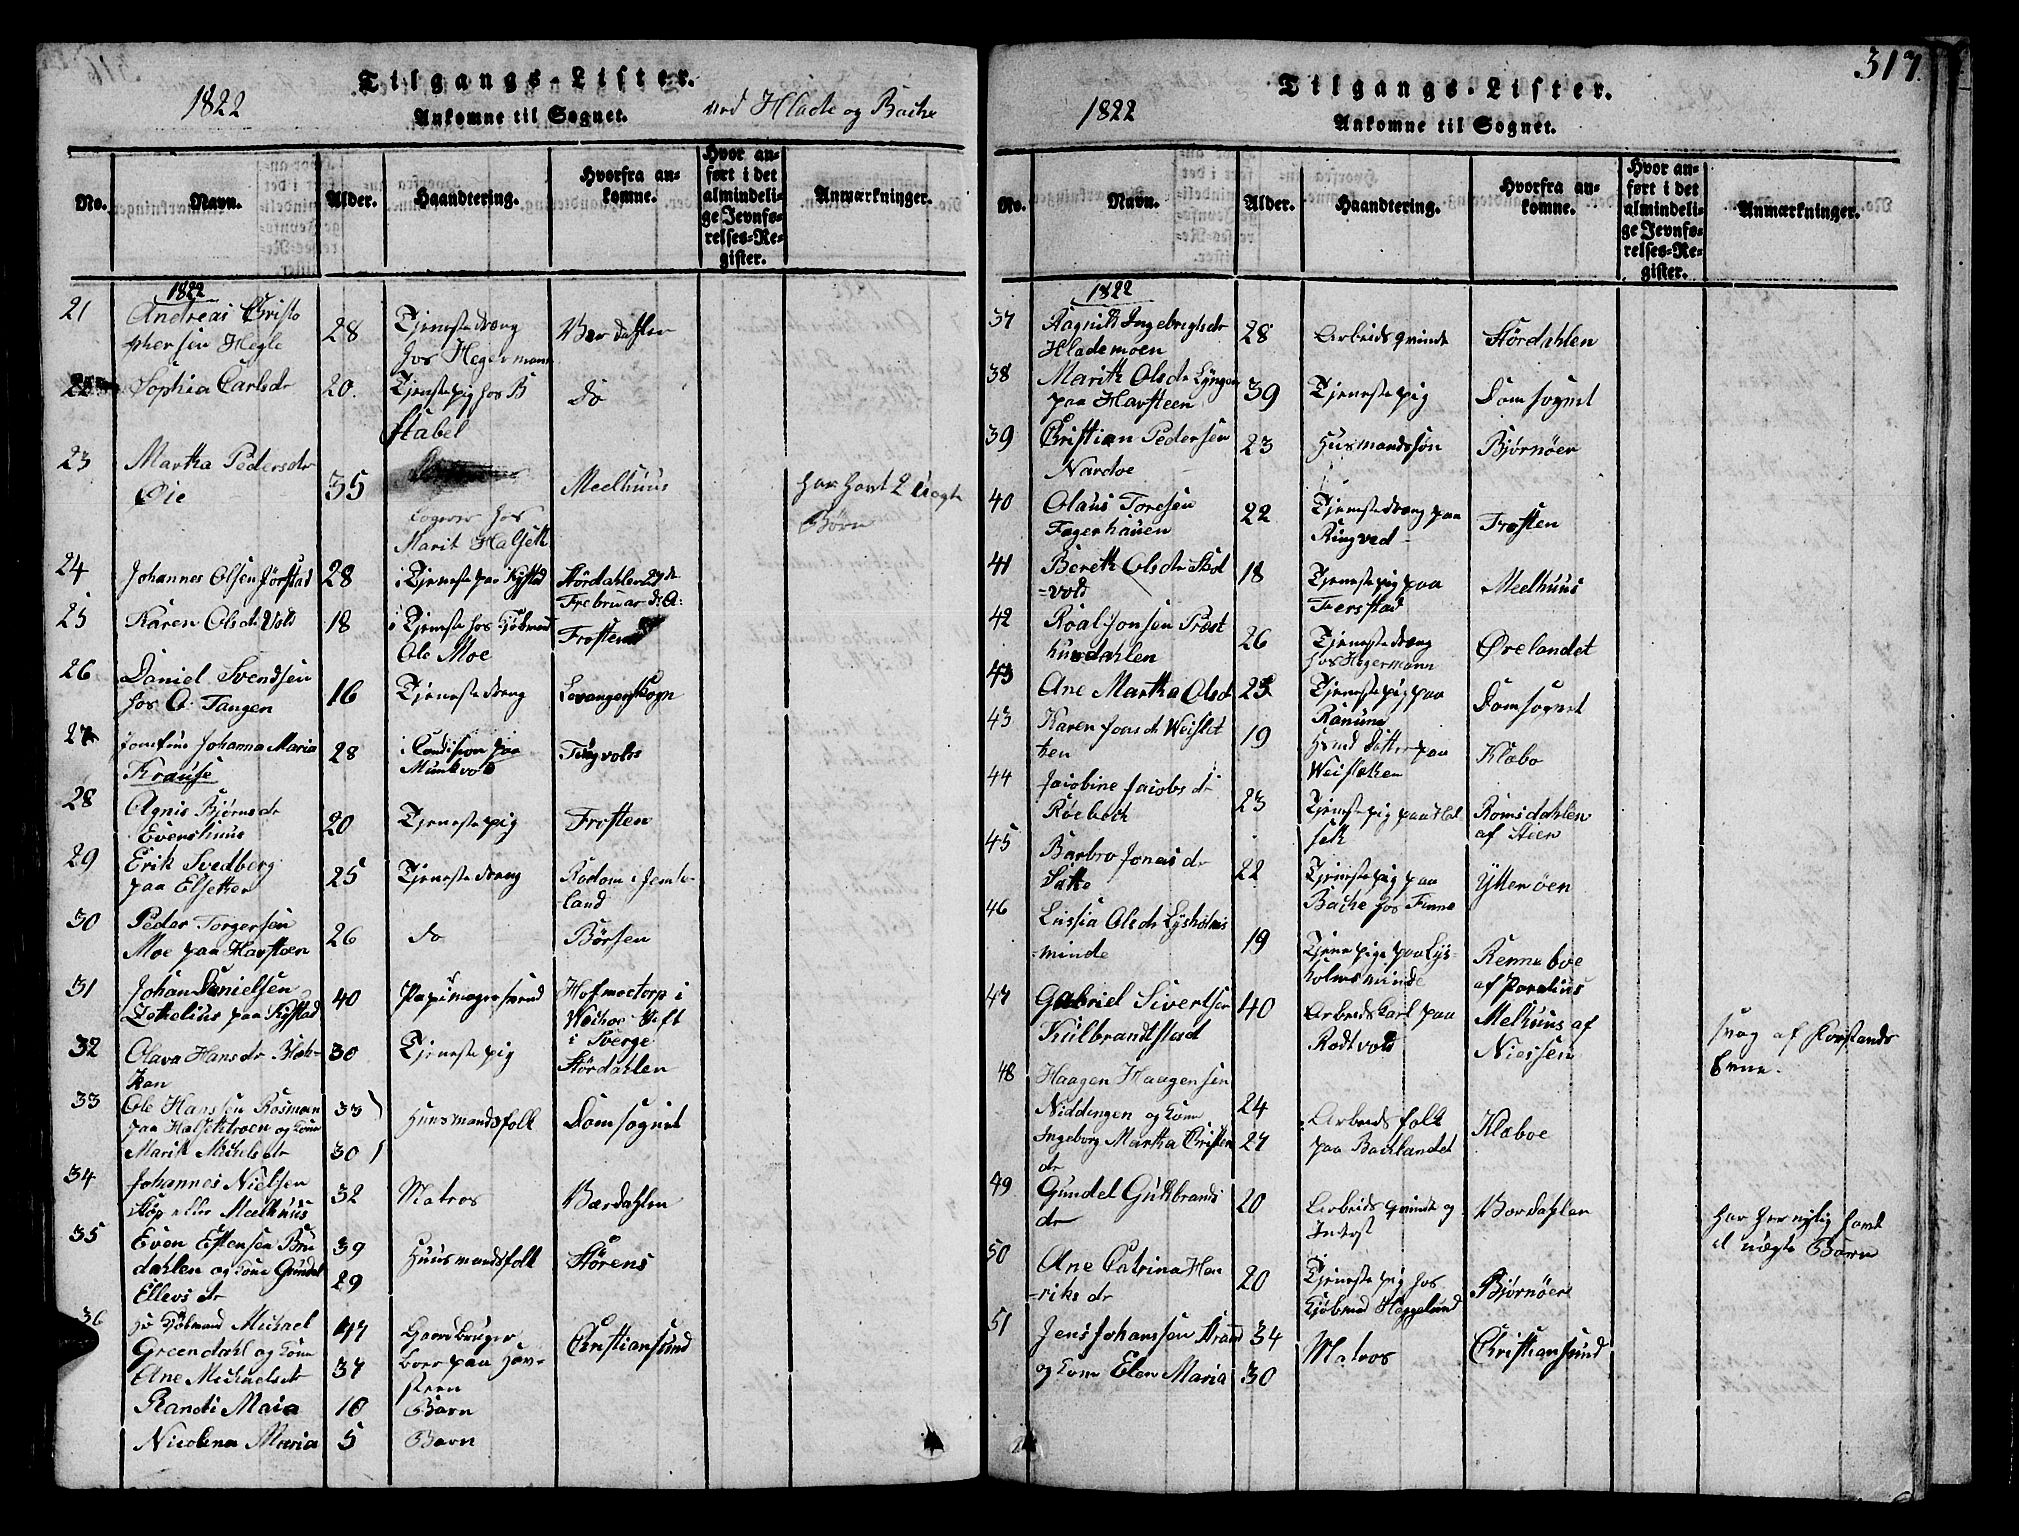 Tilgangs-Lister.
1822
Ankomne til Sognet.
ved Hlade og Bache
No.
Navn.
Alder.
Haandtering.
Hvorfra an-
komne.
Hvor an-
ført i det
almindeli-
ge Jevnfø-
relses-Re-
gister.
Anmærkninger.
1822
21 Andreas Christo
phersen Hegle 28 Tjenestedreng
hos Hegermann Værdahlen
22 Sophia Carlsdr 20. Tjenestepig hos B
Stabel do
23 Martha Pedersdr
Øie 35 Meelhuus har havt 2 uægte
Børn
Logerer hos
Marit Halseth
24 Johannes Olsen Jørstad 28 i Tjeneste paa Rystad Størdahlen 27de
Frebruar d: A:
25 Karen Olsdr Vold 18 i Tjeneste hos Kjøbmand
Ole Moe Frosten
26 Daniel Svendsen
hos A. Tangen 16 Tjenestedreng Levanger Sogn
27 Josefine Johanna Maria
Krause 28 i Condision paa
Munkvold Tingvold
28 Agnis Bjørnsdr
Evenshuus 20 Tjenestepig Frosten
29 Erik Svedberg
paa Elsetker 25 Tjenestedreng Rødom i Jemte-
land
30 Peder Torgersen
Moe paa Havsteen 26 do Børsen
31 Johan Danielsen
Zetelius paa Rystad 40 Papiimagersvend Hofmoetorp i
Wechoe Stift
i Sverge
32 Olava Hansdr Blek-
kan 30 Tjenestepig Størdahlen
33 Ole Hansen Rosmoen
paa Halsethmoen og Kone 33
Marit Michelsdr 30 Huusmandsfolk Domsognet
34 Johannes Nielsen
Stop eller Meelhuus 32 Matros Værdahlen
35 Even Estensen Bru
dahlen og Kone Gundel 39
Ellevsdr 29 Huusmandsfolk Størens
36 Hr Kjøbmand Michael
Greendahl og Kone 47
Ane Michaelsdr 37 Gaardbruger
boer paa Hav-
steen Christiansund
Randi Maia 10 Barn
Nicolina Maria 5 Barn
317
Tilgangs-Lister.
1822
Ankomne til Sognet.
No.
Navn.
Alder.
Haandtering.
Hvorfra an-
komne.
Hvor an-
ført i det
almindeli-
ge Jevnfø-
relses-Re-
gister.
Anmærkninger.
1822
37 Ragnild Ingebrigtsdr
Hlademoen 28 Arbeidsqvinde Størdahlen
38 Marith Olsdr Lyngen
paa Havsteen 39 Tjenestepig Domsognet
39 Christian Pedersen
Nardoe 23 Husmandssøn Bjørnøer
40 Olaus Toresen
Fagerhauen 22 Tjenestedreng paa
Ringved Frosten
41 Bereth Olsdr Skol
=vold 18 Tjenestepig paa
Feerstad Meelhuus
42 Roal Jonsen Præst
huusdahlen 26 Tjenestedreng
hos Hegermann Ørelandet
43 Ane Martha Olsd 25 Tjenestepig paa
Ranum Domsognet
43 Karen Joensdr Weislet
ten 19 Huusd Datter paa
Weisletten Klæbo
44 Jacobine Jacobsdr
Røebek 23 Tjenestepig paa Hal
seth Romsdahlen
af Aien
45 Barbro Jonasdr
Sætte 22 Tjenestepig paa
Bache hos Finne Ytterøen
46 Lussia Olsdr Lysholms
=minde 19 Tjenestepige paa Lys-
holmsminde Renneboe
af Parelius
47 Gabriel Sivertsen
Kulbrandtstad 40 Arbeids Karl paa
Rødtvold Melhuus af
Nissen svag af Forstands
Evne.
48 Haagen Haagensen
Niddingen og Kone 24
Ingeborg Martha Cristen
dr 27 Arbeidsfolk
paa Bachlandet Klæboe
49 Gundel Guldbrands
dr 20 Arbeids qvinde og
Inderst Værdahlen har her nylig havt
et uægte Barn
50 Ane Catrina Hen
=riksdr 20 Tjenestepig hos
Kjøbmd Heggelund Bjørnøer
51 Jens Johansen Strand 34
og Kone Elen Maria 30 Matros Christiansund